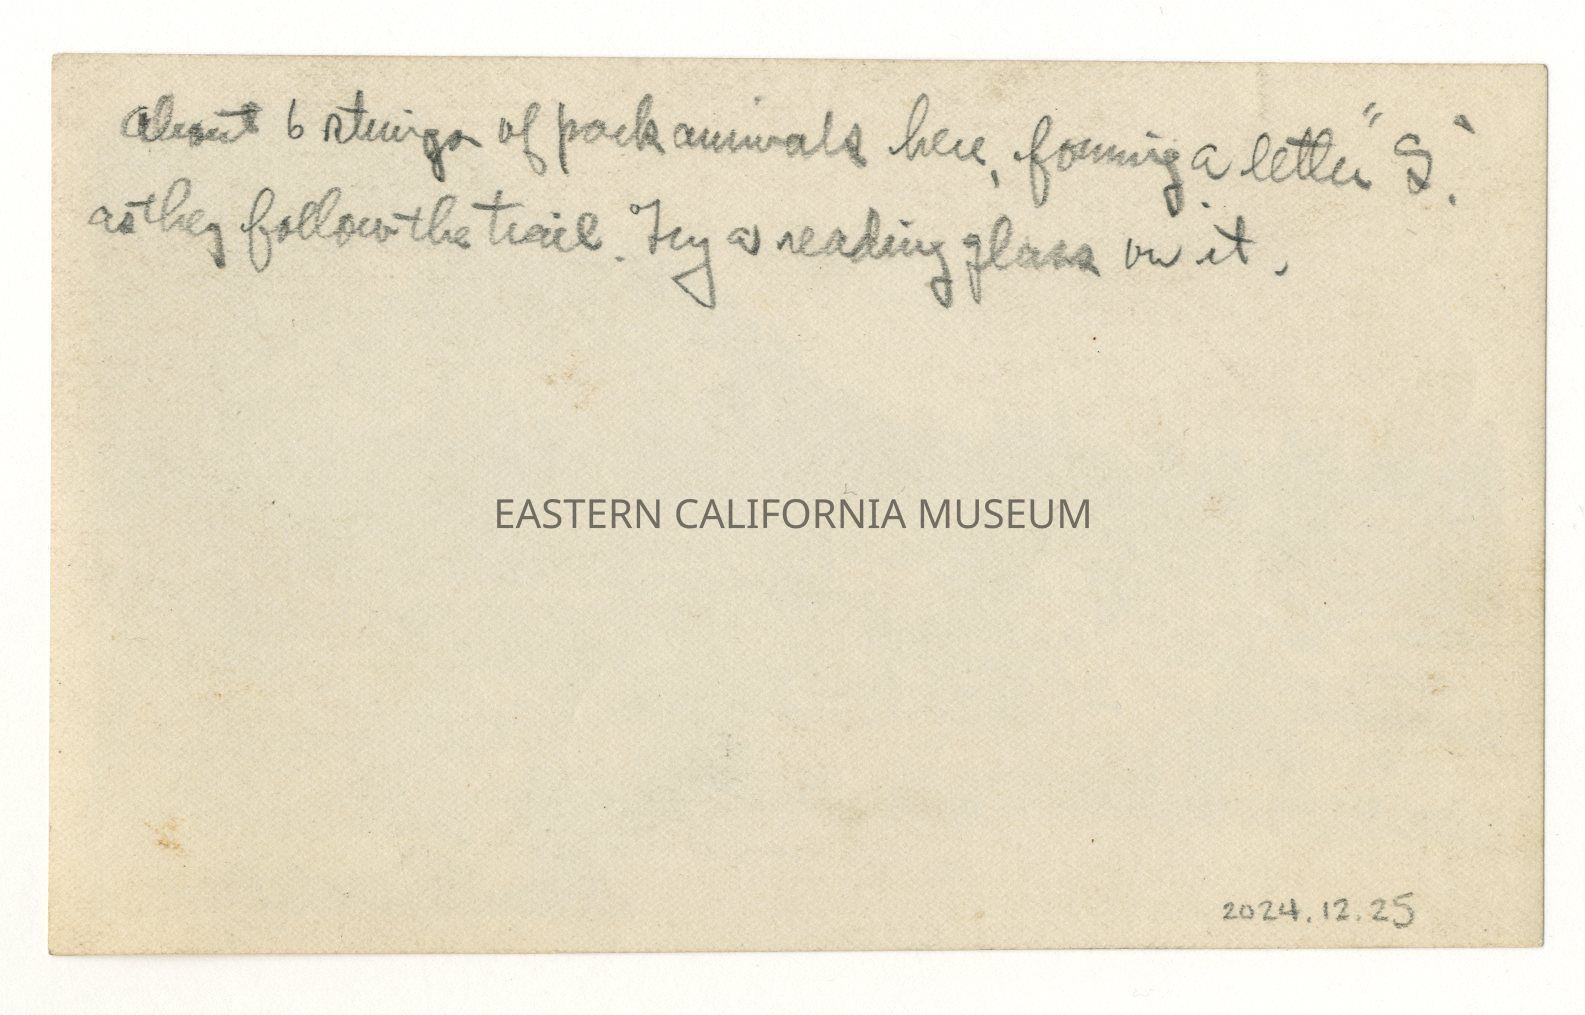 About 6 strings of pack animals here, forming a letter "S".
as they follow the trail. Try a reading glass on it.
EASTERN CALIFORNIA MUSEUM
2024.12.25